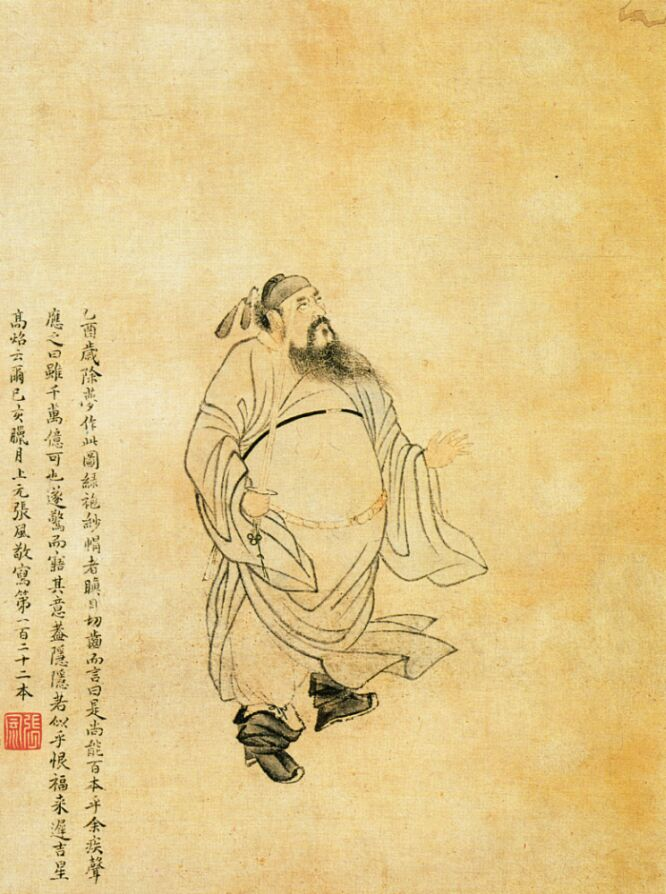 乙酉歲除夢作此圖綠袍紗帽者瞋目切齒而言曰是尚能百本乎余疾聲
應之曰雖千萬億可也遂驚而寤其意蓋隱隱者似乎恨福來遲吉星
高焰云爾己亥臘月上元張風敬寫第一百二十二本